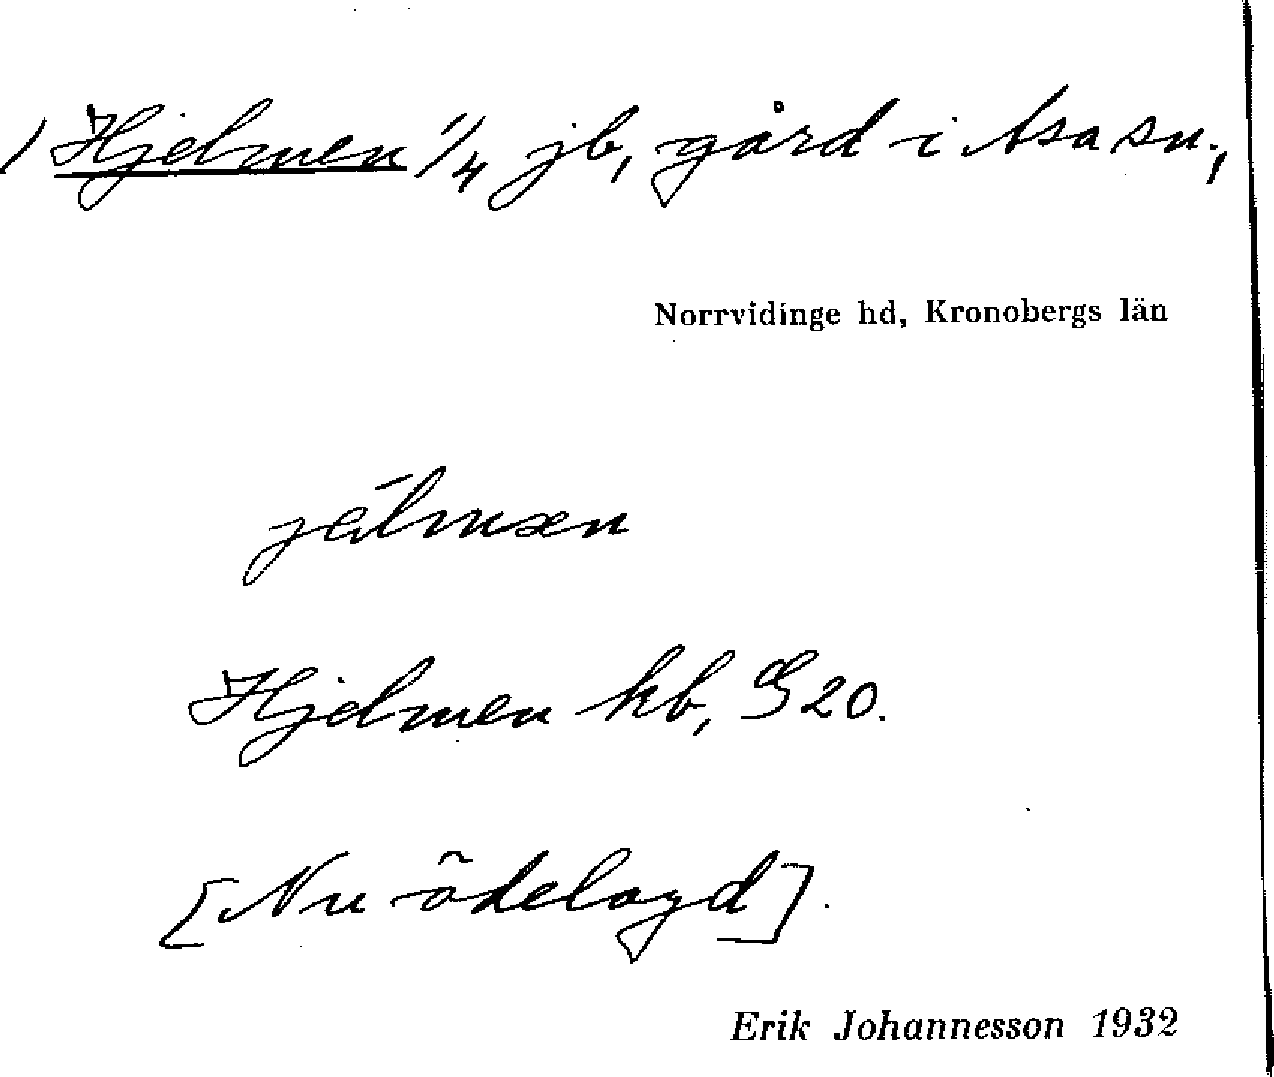 / Hjelmen 1/4 jb, gård i Asa sn.,
Norrvidinge hd, Kronobergs län
jélmæn
Hjelmen kb, G20.
[Nu ödelagd].
Erik Johannesson 1932